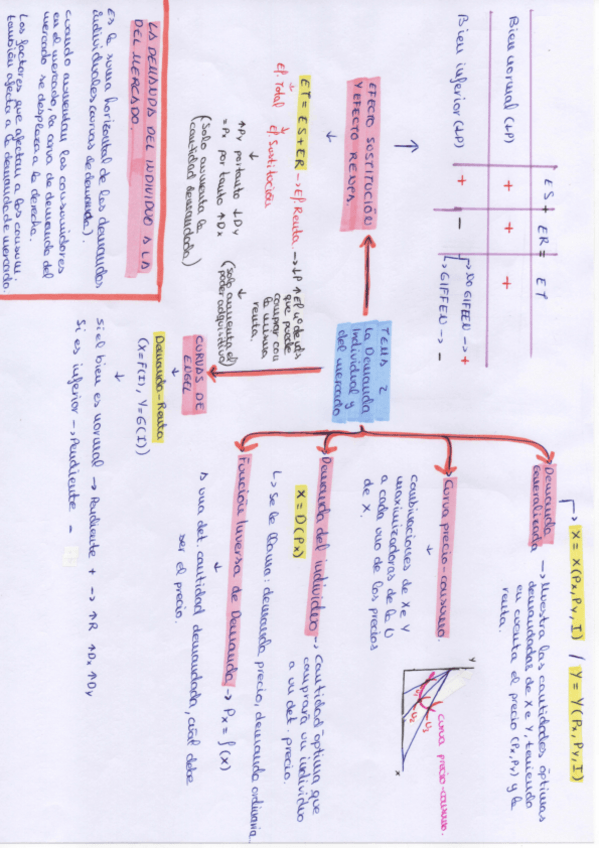 TEMA 2
La Demanda
Individual y
del mercado
X = X(Px, Py, I) / Y = Y(Px, Py, I)
Demanda
Generalizada → Muestra las cantidades óptimas
demandadas de X e Y, teniendo
en cuenta el precio (Px, Py) y la
renta.
Curva precio-consumo.
↓
combinaciones de X e Y
maximizadoras de la U
a cada uno de los precios
de X.
Y
X
curva precio-consumo.
Demanda del individuo → Cantidad óptima que
comprará un individuo
a un det. precio.
X = D(Px)
↳ se le llama: demanda precio, demanda ordinaria
Función Inversa de Demanda → Px = f(X)
↓
a una det. cantidad demandada, cuál debe
ser el precio.
CURVAS DE
ENGEL
Demanda-Renta
(X=F(I), Y=G(I))
↓
Si el bien es normal → Pendiente + → ↑R ↑Dx ↑Dy
Si es inferior → Pendiente -
EFECTO SUSTITUCIÓN
Y EFECTO RENTA
ES + ER = ET
Bien normal (↓P) + + +
Bien inferior (↓P) + -
NO GIFFEN → +
GIFFEN → -
ET = ES + ER → Ef. Renta → ↓P ↑El nº de uds
que puede
comprar con
la misma
renta.
Ef. Total
Ef. Sustitución
↑Py por tanto ↓Dy
= Px por tanto ↑Dx
(Solo aumenta la
cantidad demandada)
(Solo aumenta el
poder adquisitivo)
LA DEMANDA DEL INDIVIDUO A LA
DEL MERCADO.
Es la suma horizontal de las demandas
individuales (curvas de demanda).
cuando aumentan los consumidores
en el mercado, la curva de demanda del
mercado se desplaza a la derecha.
Los factores que afectan a los consumi-
también afecta a la demanda de mercado.